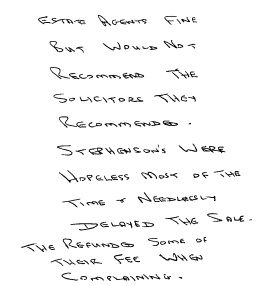 ESTATE AGENTS FINE
BUT WOULD NOT
RECOMMEND THE
SOLICITORS THEY
RECOMMENDED.
STEPHENSON'S WERE
HOPELESS MOST OF THE
TIME & NEEDLESSLY
DELAYED THE SALE.
THE REFUNDED SOME OF
THEIR FEE WHEN
COMPLAINING.